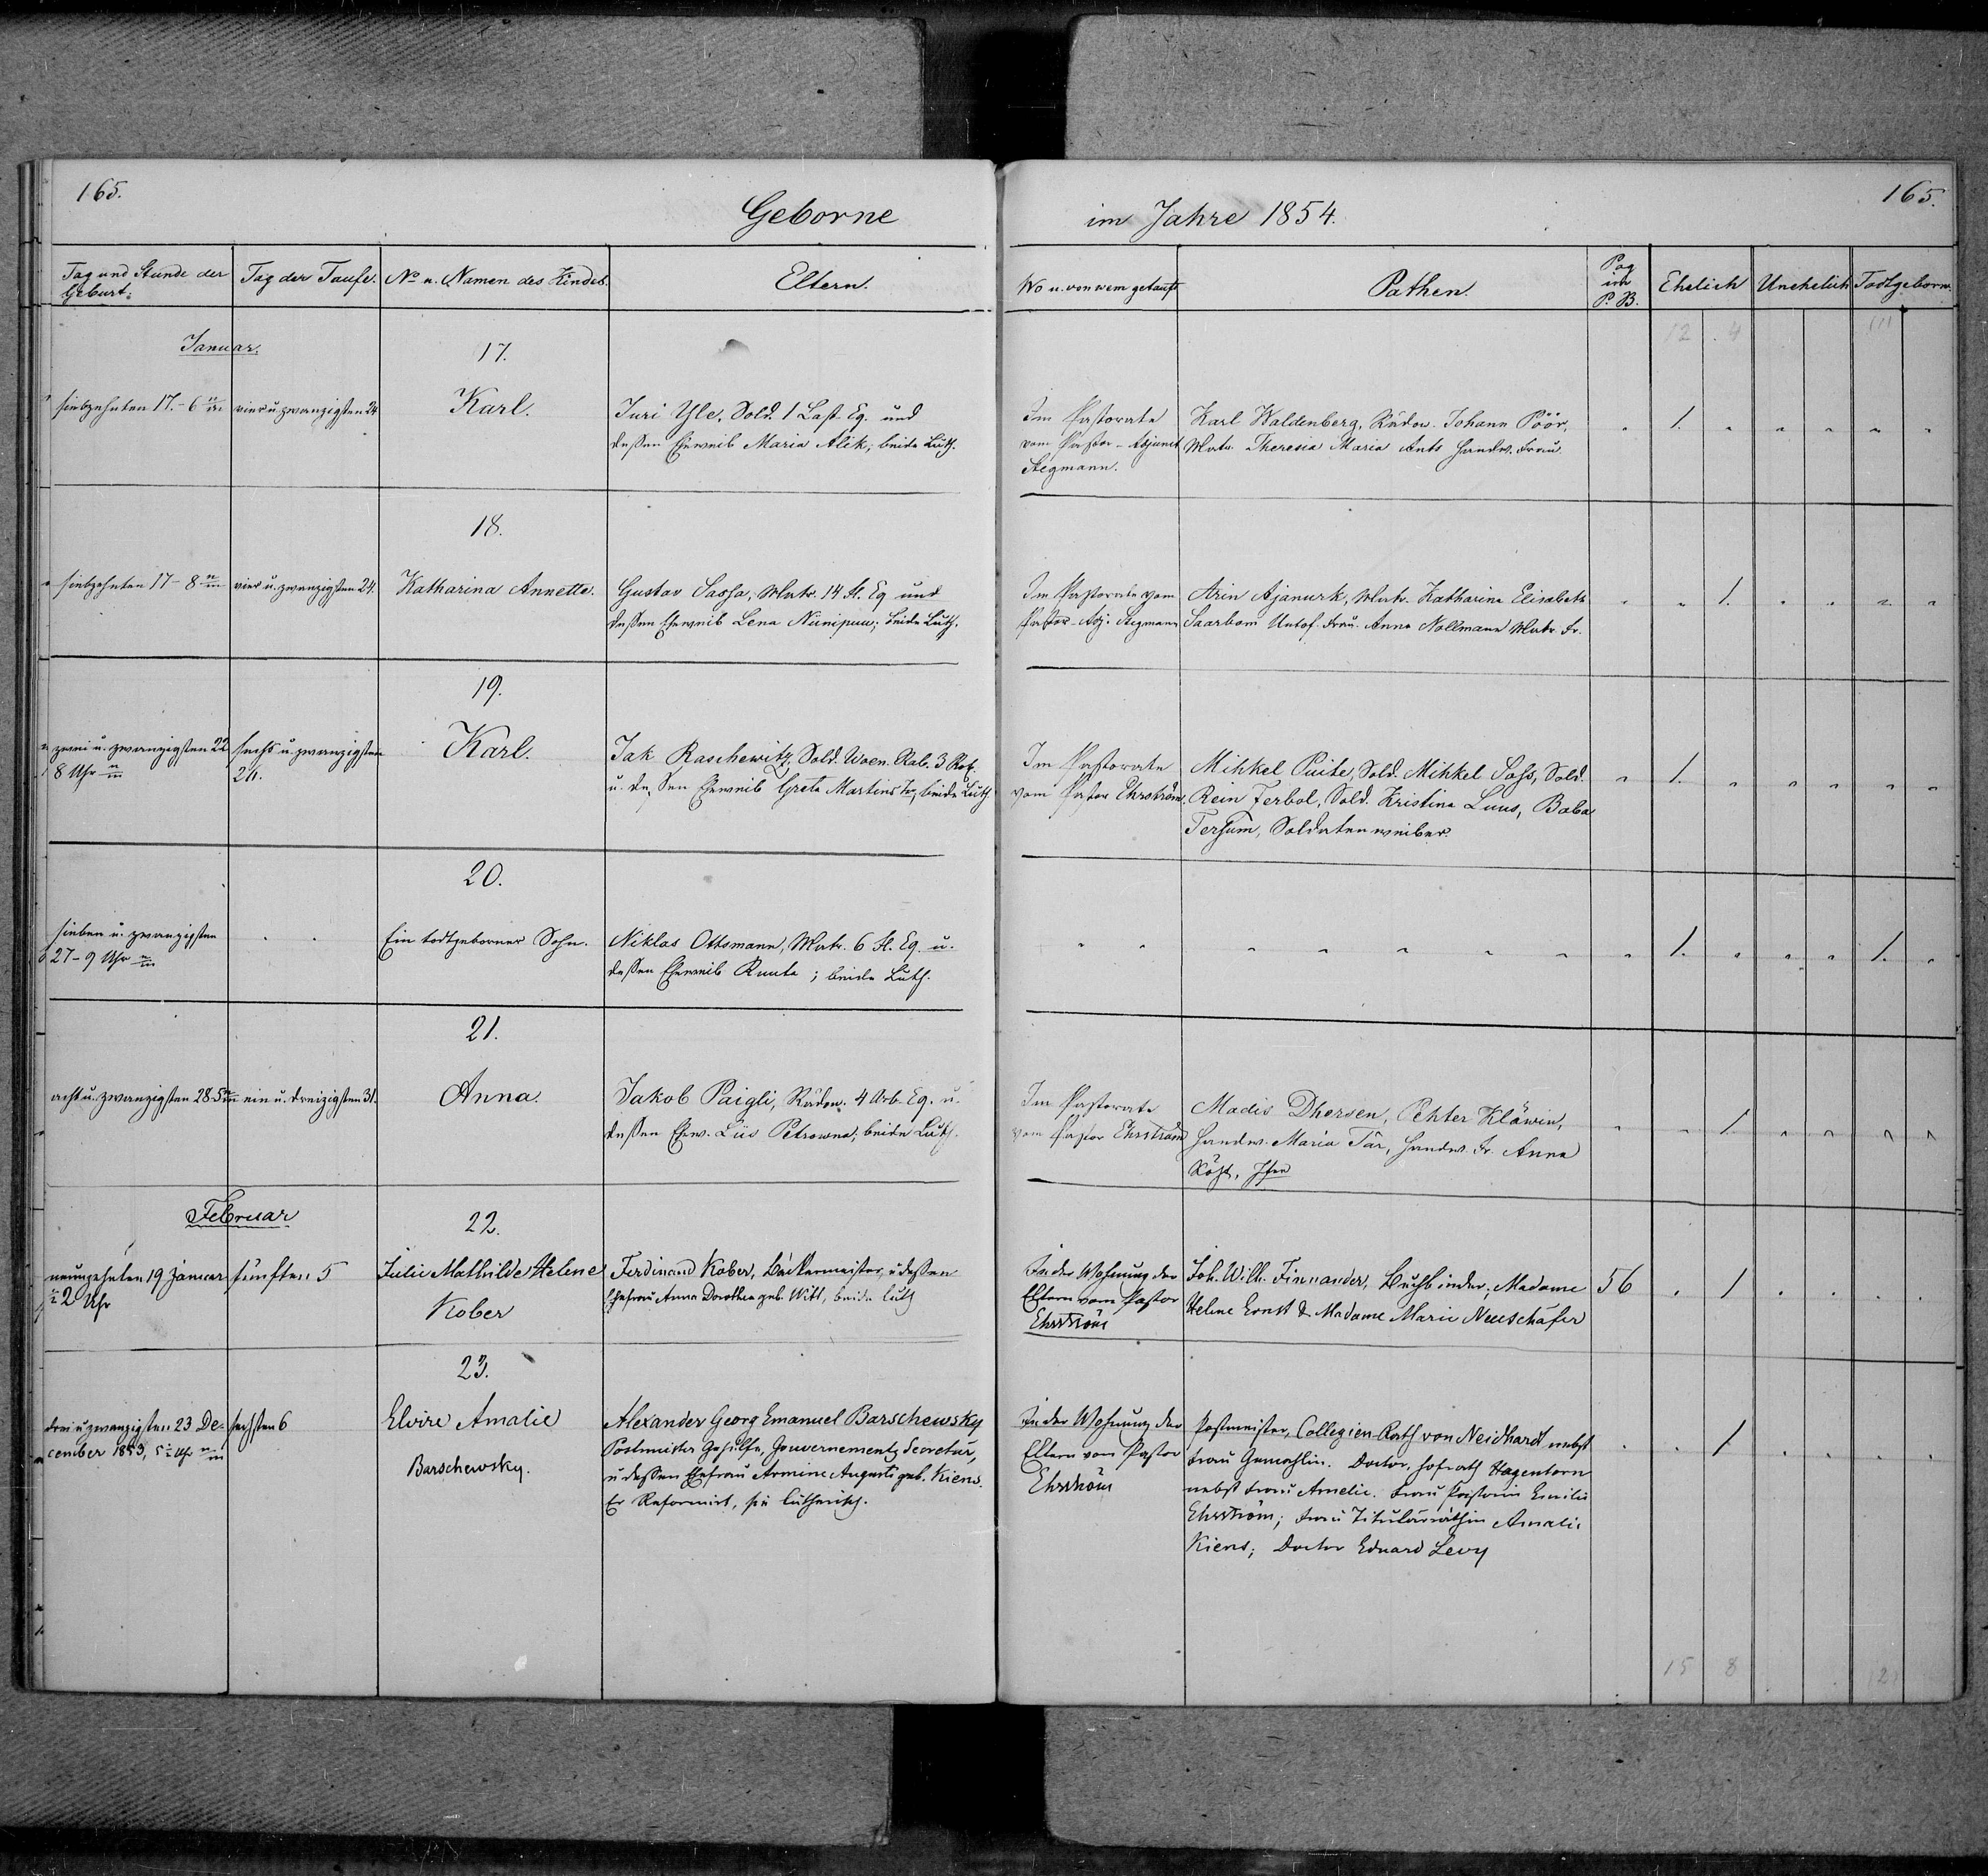 165.
Geborne
im Jahre 1854.
165.
Tag und Stunde der Geburt.
Tag der Taufe.
No u. Namen des Kindes.
Eltern.
Wo u. von wem getauft
Pathen.
Pag im P. B.
Ehelich
Unehelich
Todtgeborn.
12 4
Januar.
17.
siebzehnten 17. - 6
vier u. zwanzigsten 24
Karl.
Juri Yle, Sold. 1 Last. Eq. und
deßen Eheweib Maria Alik, beide Luth.
Im Pastorate
vom Pastor-Adjunct
Stegmann.
Karl Waldenberg, Johann Pöör,
Matr. Theresia Maria Ants Handw. Frau.
1.
18.
siebzehnten 17 - 8
vier u. zwanzigsten 24.
Katharina Annette.
Gustav Sassa, Matr. 14 Fl. Eq und
deßen Eheweib Lena Niinipuu; beide Luth.
Im Pastorate vom
Pastor-Adj. Stegmann
Arin Ajanurk, Matr. Katharina Elisabeth
Saarbom Untof. Frau. Anna Nollmann Matr. Fr.
1.
19.
zwei u. zwanzigsten 22
8 Uhr
sechs u. zwanzigsten
26.
Karl.
Jak Raschewitz, Sold. 3 Rot.
u. deßen Eheweib Greta Martins beide Luth.
Im Pastorate
vom Pastor Ehrström.
Mihkel Puite, Sold. Mihkel Sass, Sold.
Rein Ferbol, Sold. Kristina Luus, Baba
Soldatenweiber.
1.
20.
sieben u. zwanzigsten
27 - 9 Uhr
Ein todtgeborner Sohn.
Niklas Ottsmann, Matr. 6 Fl. Eq. u.
deßen Eheweib Ruuta; beide Luth.
1.
1.
21.
acht u. zwanzigsten 28. 5
ein u. dreizigsten 31.
Anna.
Jakob Paigli, 4 Arb. Eq. u.
deßen Ehew. Liis Petrowna; beide Luth.
Im Pastorate
vom Pastor Ehrström
Madis Dhersen, Pehter Kläwin,
Handw. Maria Tär, Handw. Fr. Anna
1.
Februar
22.
neunzehnten 19 Januar
2 Uhr
fünften 5
Julie Mathilde Helene
Kober
Ferdinand Kober, Bäckermeister, u deßen
Ehefrau Anna Dorothea geb. Witt, beide luth
In der Wohnung der
Eltern vom Pastor
Ehrström
Joh. Wilh. Finnander, Buchbinder; Madame
Helene Ernst & Madame Marie Neuschäfer
56
1
23.
drei u. zwanzigsten 23 De-
cember 1853, 5 Uhr
sechsten 6
Elvire Amalie
Barschewsky.
Alexander Georg Emanuel Barschewsky
Postmeister Gehülfe, Gouvernements Secretär,
u deßen Ehefrau Armine Auguste geb. Kiens.
Er Reformirt, sie lutherisch.
In der Wohnung der
Eltern vom Pastor
Ehrström
Postmeister, Collegien-Rath von Neidhardt nebst
Frau Gemahlin. Doctor, Hofrath Hagentorn
nebst Frau Amelie. Frau Pastorin Emilie
Ehrström; Frau Titulärräthin Amalie
Kiens; Doctor Eduard Levy
1
15 8 2